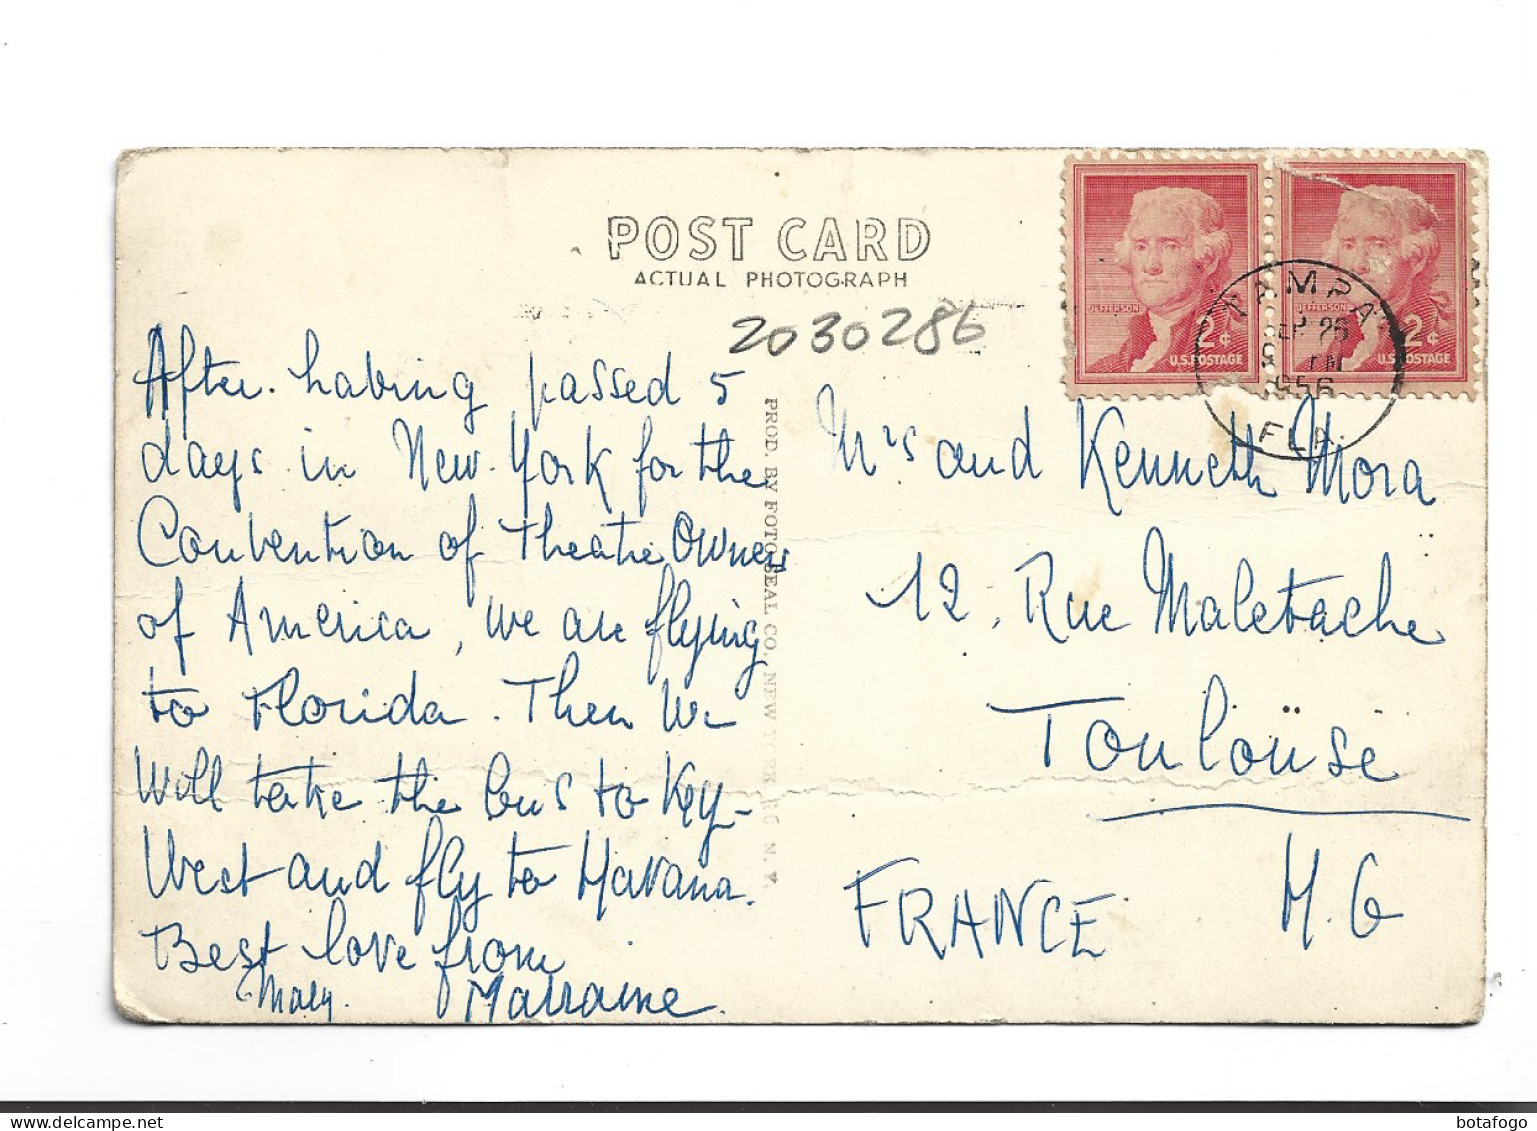 POST CARD
ACTUAL PHOTOGRAPH
2030286
After having passed 5
days in New York for the
Convention of Theatre Owners
of America, we are flying
to Florida. Then we
will take the bus to Key-
West and fly to Havana.
Best love from
Maly. Marraine.
PROD. BY FOTO SEAL CO., NEW YORK N.Y.
JEFFERSON
2¢
U.S. POSTAGE
JEFFERSON
2¢
U.S. POSTAGE
TAMPA
SEP 26
1956
FLA.
Mrs and Kenneth Mora
12, Rue Maletache
Toulouse
H.G
FRANCE
botafogo